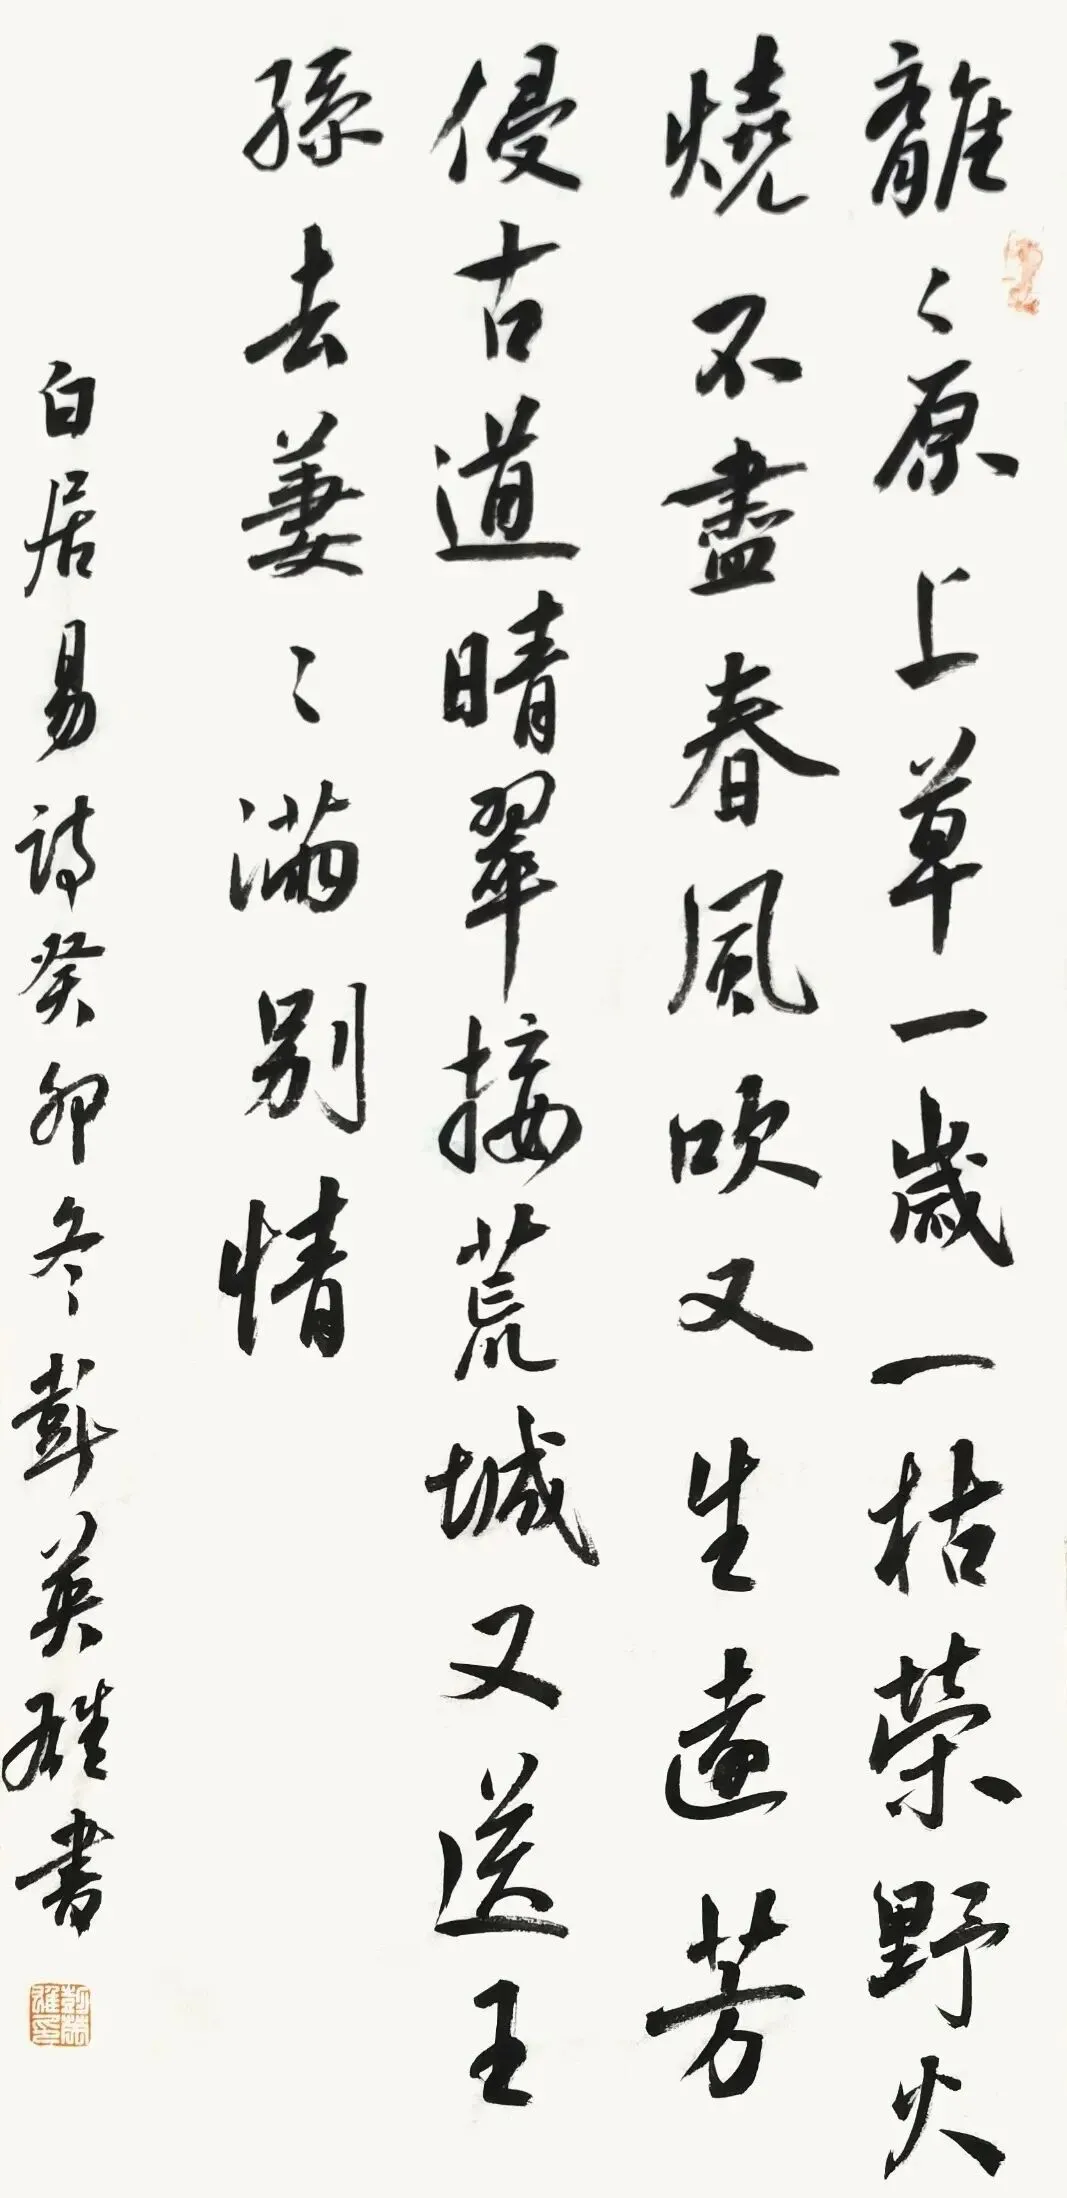 離〻原上草一歲一枯榮野火
燒不盡春風吹又生遠芳
侵古道晴翠接荒城又送王
孫去萋〻滿別情
白居易詩癸卯冬彭英雄書
彭英雄印